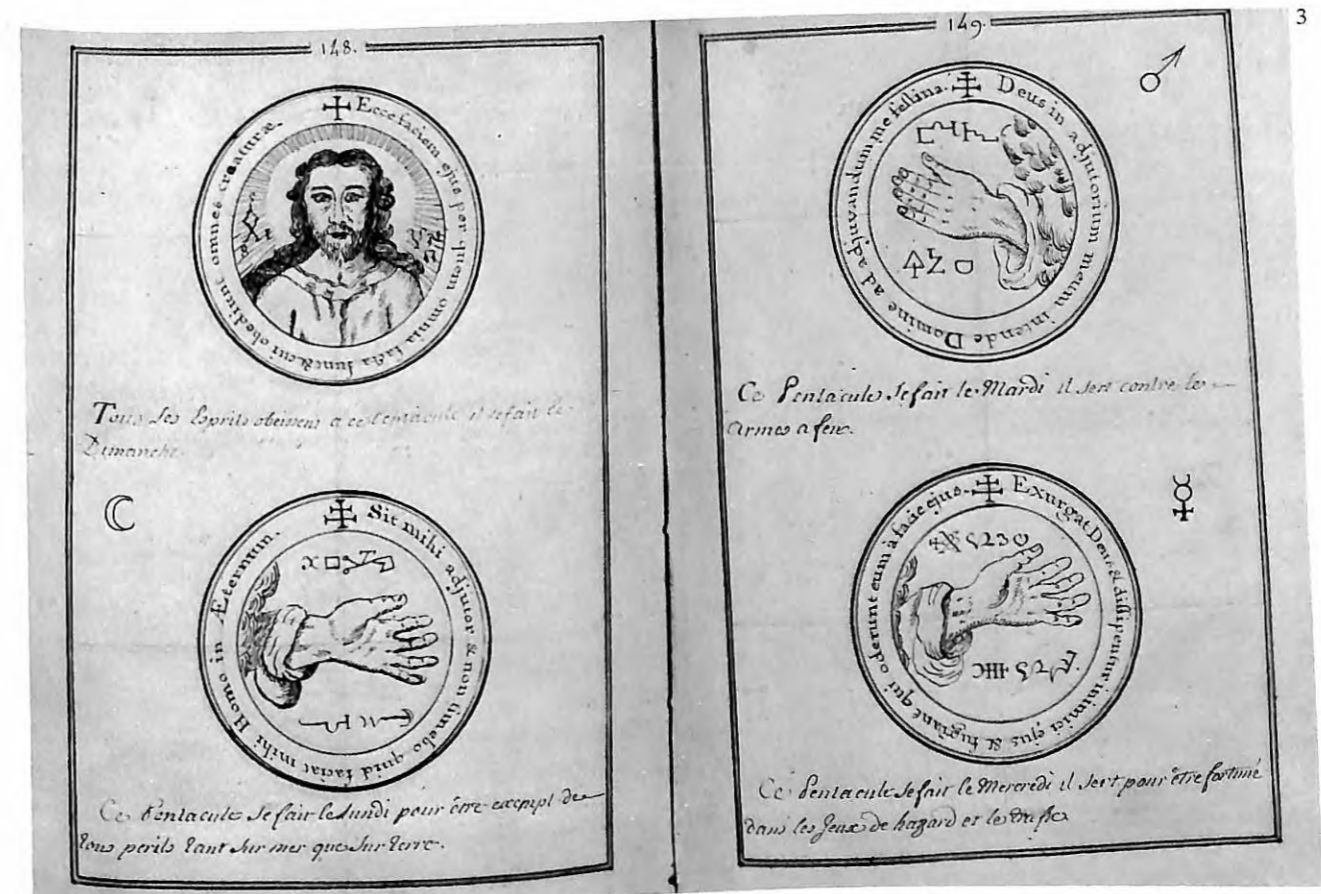 3
148.
Ecce faciem ejus per quem omnia facta sunt & cui obediunt omnes creaturæ
Tous les Esprits obeissent a ce Pentacule il se fait le
Dimanche.
Sit mihi adjutor & non timebo quid faciat mihi Homo in Æternum.
Ce Pentacule se fait le Lundi pour être exempt de
tous perils tant sur mer que sur terre.
149.
Deus in adjutorium meum intende Domine ad adjuvandum me festina.
Ce Pentacule se fait le Mardi il sert contre les
armes a feu.
Exurgat Deus & dissipentur inimici ejus & fugiant qui oderunt eum à facie ejus.
Ce Pentacule se fait le Mercredi il sert pour être fortuné
dans les Jeux de hazard et le trafic